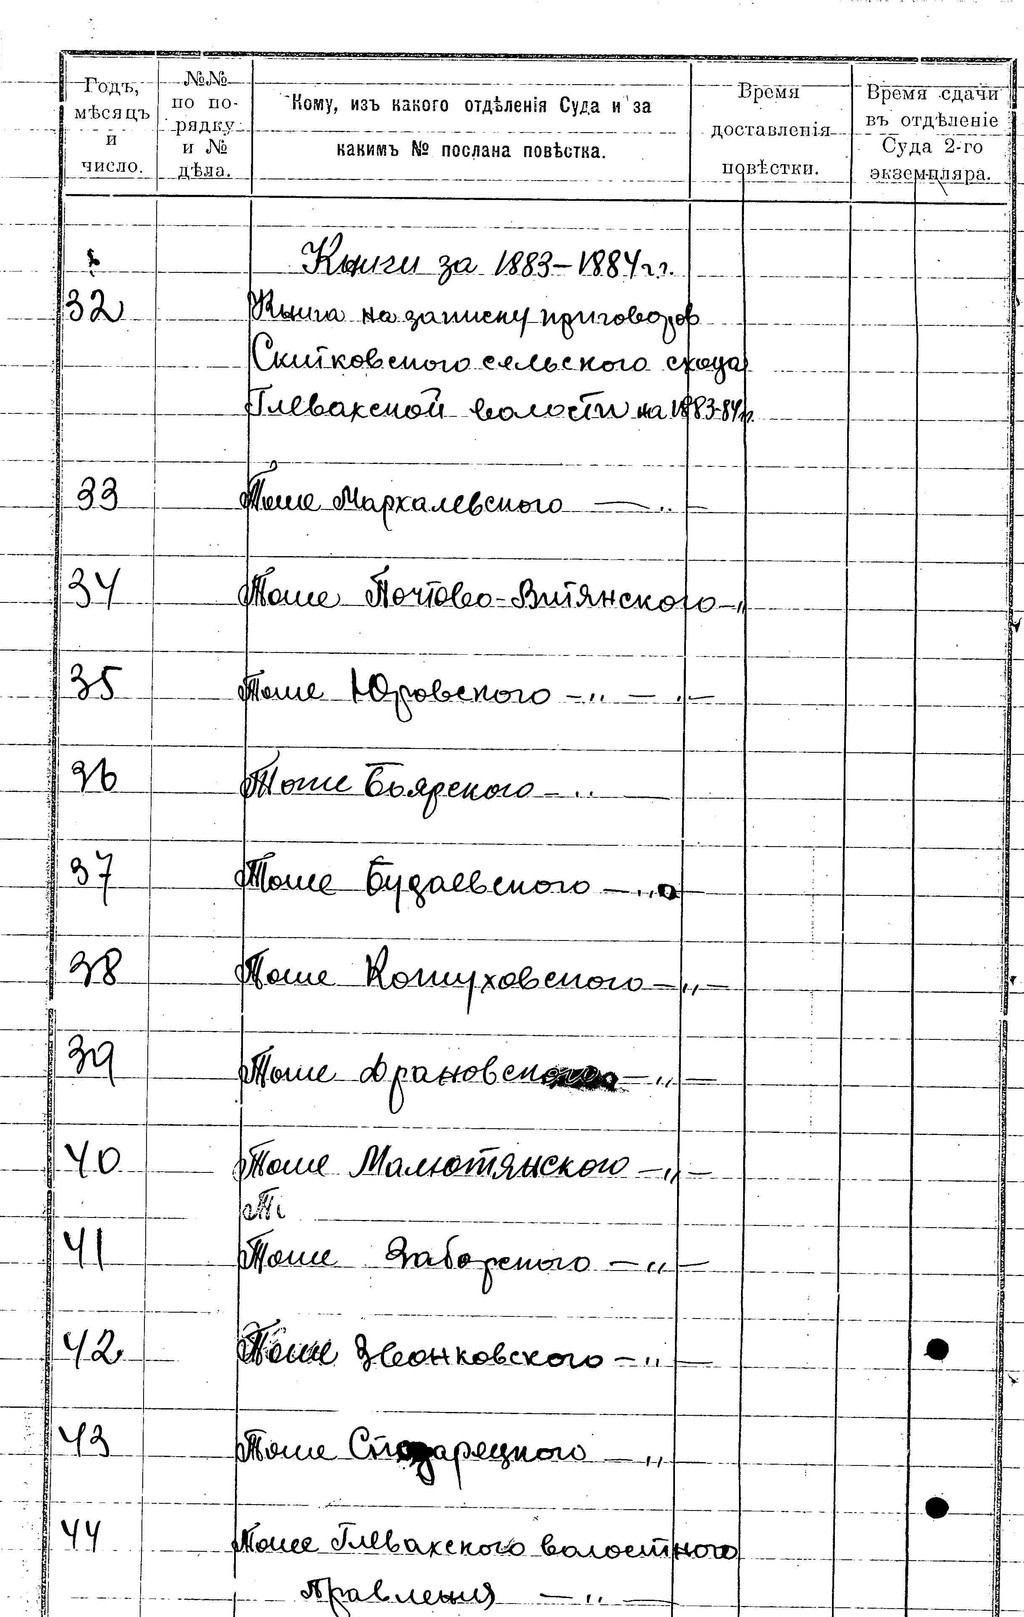 Годъ, мѣсяцъ и число.
№№ по по-рядку и № дѣла.
Кому, изъ какого отдѣленія Суда и за какимъ № послана повѣстка.
Время доставленія повѣстки.
Время сдачи въ отдѣленіе Суда 2-го экземпляра.
Книги за 1883-1884 г.г.
32 Книга на записку приговоров
Скитковского сельского схода
Глевакской волости на 1883-84 гг.
33 Тоже Мархалевского — „ —
34 Тоже Почтово-Витянского - „
35 Тоже Юровского - „ - „ -
36 Тоже Боярского - „ —
37 Тоже Будаевского - „ -
38 Тоже Кожуховского - „ -
39 Тоже Франовского - „ -
40 Тоже Малютянского - „ -
То
41 Тоже Заборского - „ -
42 Тоже Звонковского - „ -
43 Тоже - „
44 Тоже Глевакского волостного
правления - „ -